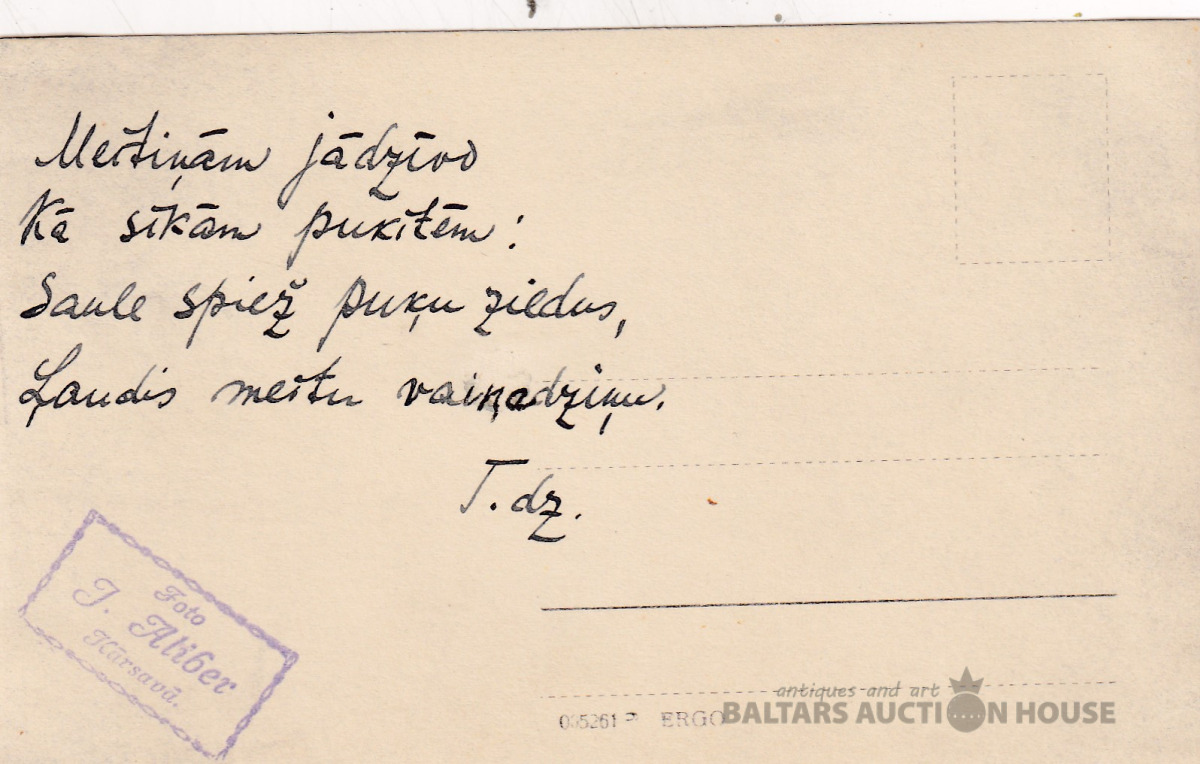 Meitiņām jādzīvo
Kā sīkām puķītēm:
Saule spiež puķu ziedus,
Ļaudis meitu vaiņadziņu.
T. dz.
Foto
J. Aliber
Kārsavā.
antiques and art
BALTARS AUCTION HOUSE
ERGO